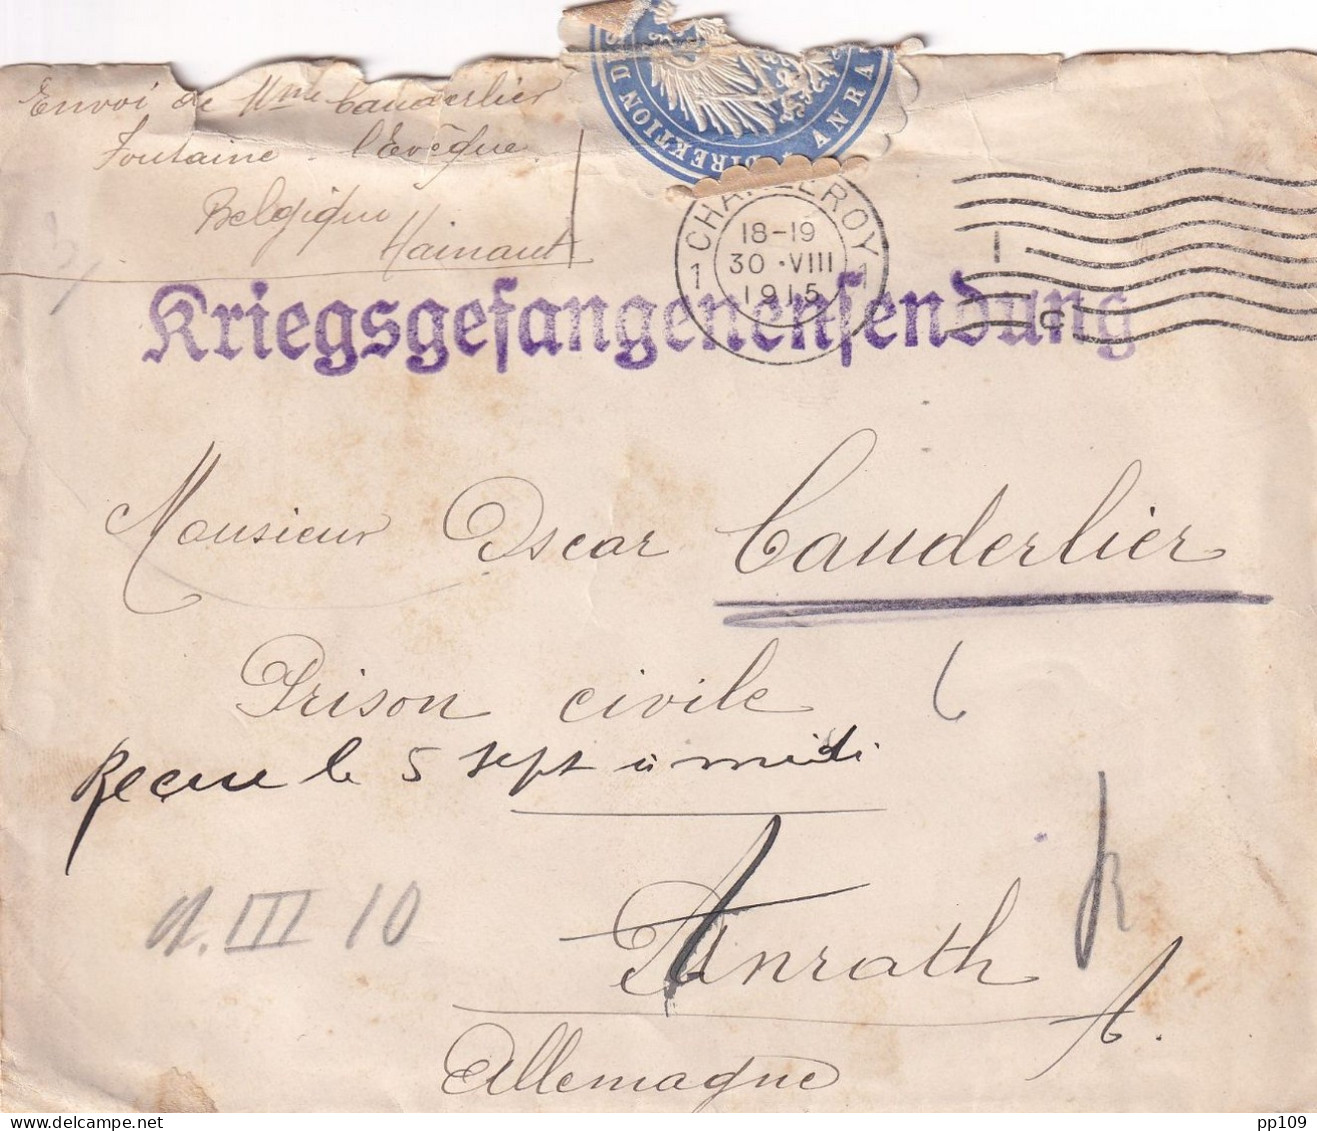 Envoi de Mme Cauderlier
Fontaine - l'Evêque
Belgique
Hainaut
DIREKTION DES
ANRA
CHARLEROY
18-19
30 · VIII
1915
1 1
Kriegsgefangenensendung
Monsieur Oscar Cauderlier
Prison civile
Reçue le 5 sept à midi
III 10
Anrath
A.
Allemagne
pp109